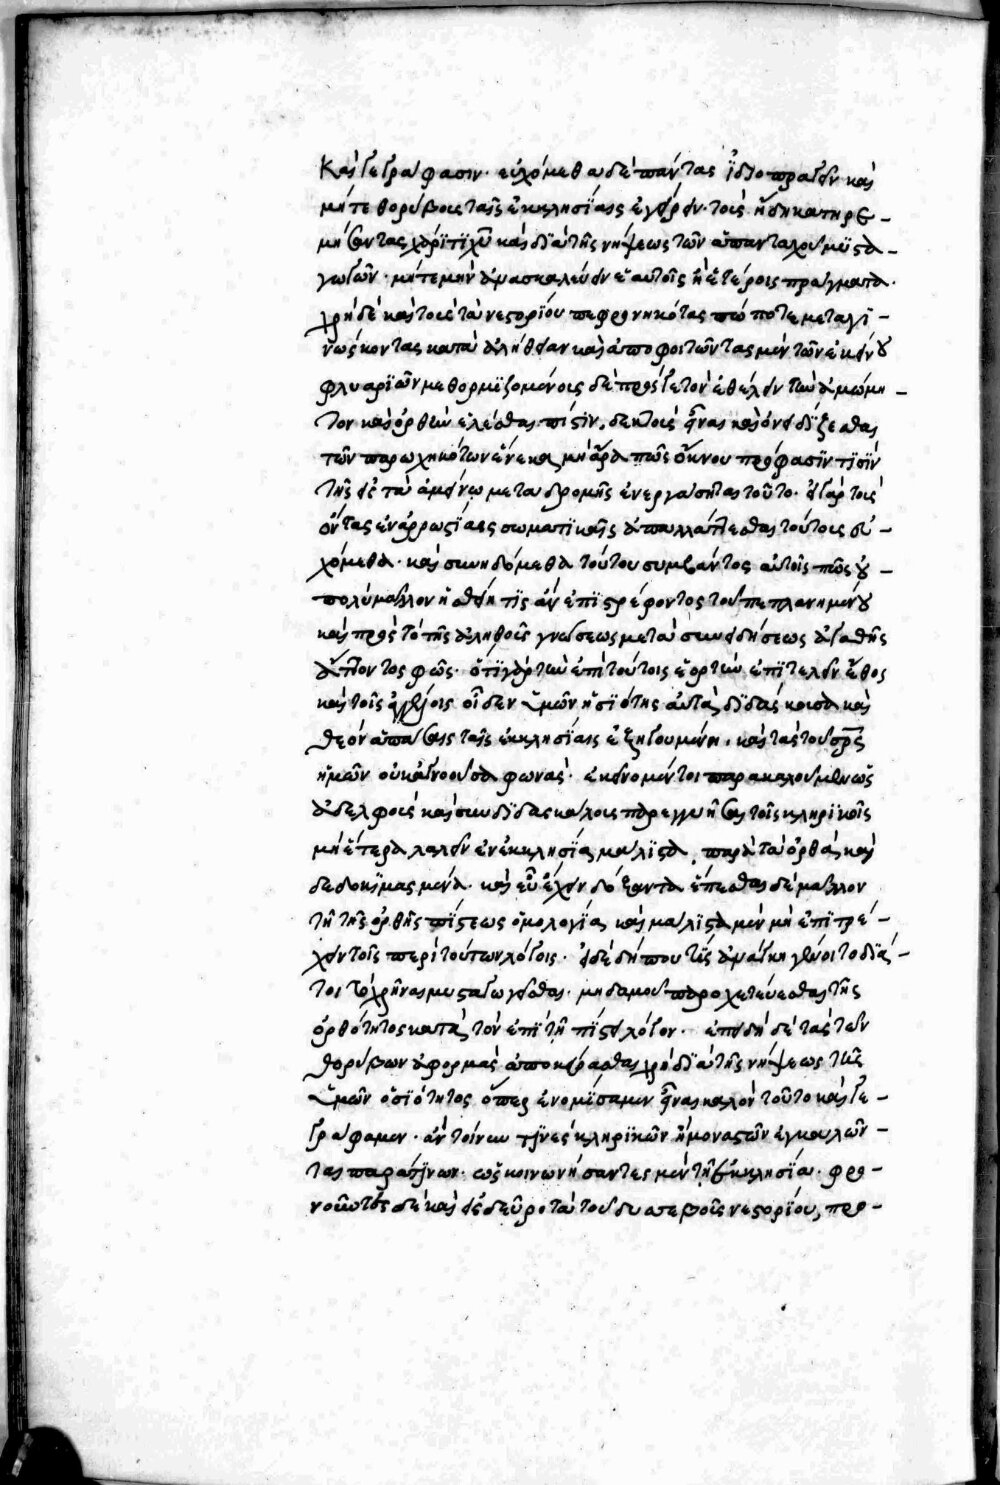 καὶ γεγράφασιν· εὐχόμεθα δὲ πάντας ἰδιοπραγεῖν καὶ
μήτε θορύβοις ταῖς ἐκκλησίαις ἐγείρειν· τοὺς ἤδη κατηρε-
μήσαντας χάριτι χῦ καὶ διὰ τῆς νήψεως τῶν ἁπανταχοῦ μυστα-
γωγῶν· μήτε μὴν ἀνασκαλεύειν ἑαυτοῖς ἢ ἑτέροις πράγματα·
χρὴ δὲ καὶ τοὺς τὰ νεστορίου πεφρονηκότας πώποτε μεταγι-
νώσκοντας κατὰ ἀλήθειαν καὶ ἀποφοιτῶντας μὲν τῶν ἐκείνου
φλυαριῶν μεθορμιζομένοις δὲ πρός γε τὸν ἐθέλειν τὴν ἀμώμη-
τον καὶ ὀρθὴν ἑλέσθαι πίστιν, δεκτοὺς εἶναι καὶ ὀνειδίζεσθαι
τῶν παρωχηκότων ἕνεκα μὴ ἄρα πῶς ὄκνου πρόφασιν τισὶν
τῆς εἰς τὰ ἀμείνω μεταδρομῆς ἐνεργάσηται τοῦτο· εἰ γὰρ τοὺς
ὄντας ἐν ἀρρωστίαις σωματικαῖς ἀπαλλάττεσθαι τούτοις εὐ-
χόμεθα· καὶ συνηδόμεθα τούτου συμβάντος αὐτοῖς πῶς οὐ
πολὺ μᾶλλον ἡσθείη τίς ἂν ἐπιστρέφοντος τοῦ πεπλανημένου
καὶ πρὸς τὸ τῆς ἀληθοῦς γνώσεως μετὰ συνειδήσεως ἀγαθῆς
ἄττοντος φῶς· ὅτι γὰρ τὴν ἐπὶ τούτοις ἑορτὴν ἐπιτελεῖν ἔθος
καὶ τοῖς ἀγγέλοις οἶδεν ὑμῶν ἡ ὁσιότης αὐτὰ διδάσκουσα καὶ
θεὸν ἁπάσαις ταῖς ἐκκλησίαις ἐξηγουμένη, καὶ τὰς τοῦ σρς
ἡμῶν οὐκ ἀγνοοῦσα φωνάς· ἐκεῖνο μέντοι παρακαλοῦμεν ὡς
ἀδελφοὺς καὶ συνδιδασκάλους παρεγγυῆσαι τοῖς κληρικοῖς
μὴ ἕτερα λαλεῖν ἐν ἐκκλησίᾳ μάλιστα, παρὰ τὰ ὀρθὰ καὶ
δεδοκιμασμένα· καὶ εὖ ἔχειν δόξαντα ἕπεσθαι δὲ μᾶλλον
τῇ τῆς ὀρθῆς πίστεως ὁμολογίᾳ καὶ μάλιστα μὲν μὴ ἐπιτρέ-
χειν τοῖς περὶ τούτων λόγοις· εἰ δὲ δήπου τὶς ἀνάγκη γένοιτο διά
τοι τὸ χρῆναι μυσταγωγεῖσθαι· μηδαμοῦ παροχετεύεσθαι τῆς
ὀρθότητος κατὰ τὸν ἐπὶ τῇ πίστει λόγον· ἐπειδὴ δὲ τὰς τῶν
θορύβων ἀφορμὰς ἀποκείρασθαι χρὴ διὰ τῆς νήψεως τῆς
ὑμῶν ὁσιότητος ὅπερ ἐνομίσαμεν εἶναι καλὸν τοῦτο καὶ γε-
γράφαμεν· ἂν τοίνυν τινὲς κληρικῶν ἢ μοναστῶν ἐγκαλῶν-
ται παρά τινων· ὡς κοινωνήσαντες μὲν τῇ ἐκκλησίᾳ· φρο-
νοῦντες δὲ καὶ εἰς δεῦρο τὰ τοῦ δυσσεβοῦς νεστορίου, προ-